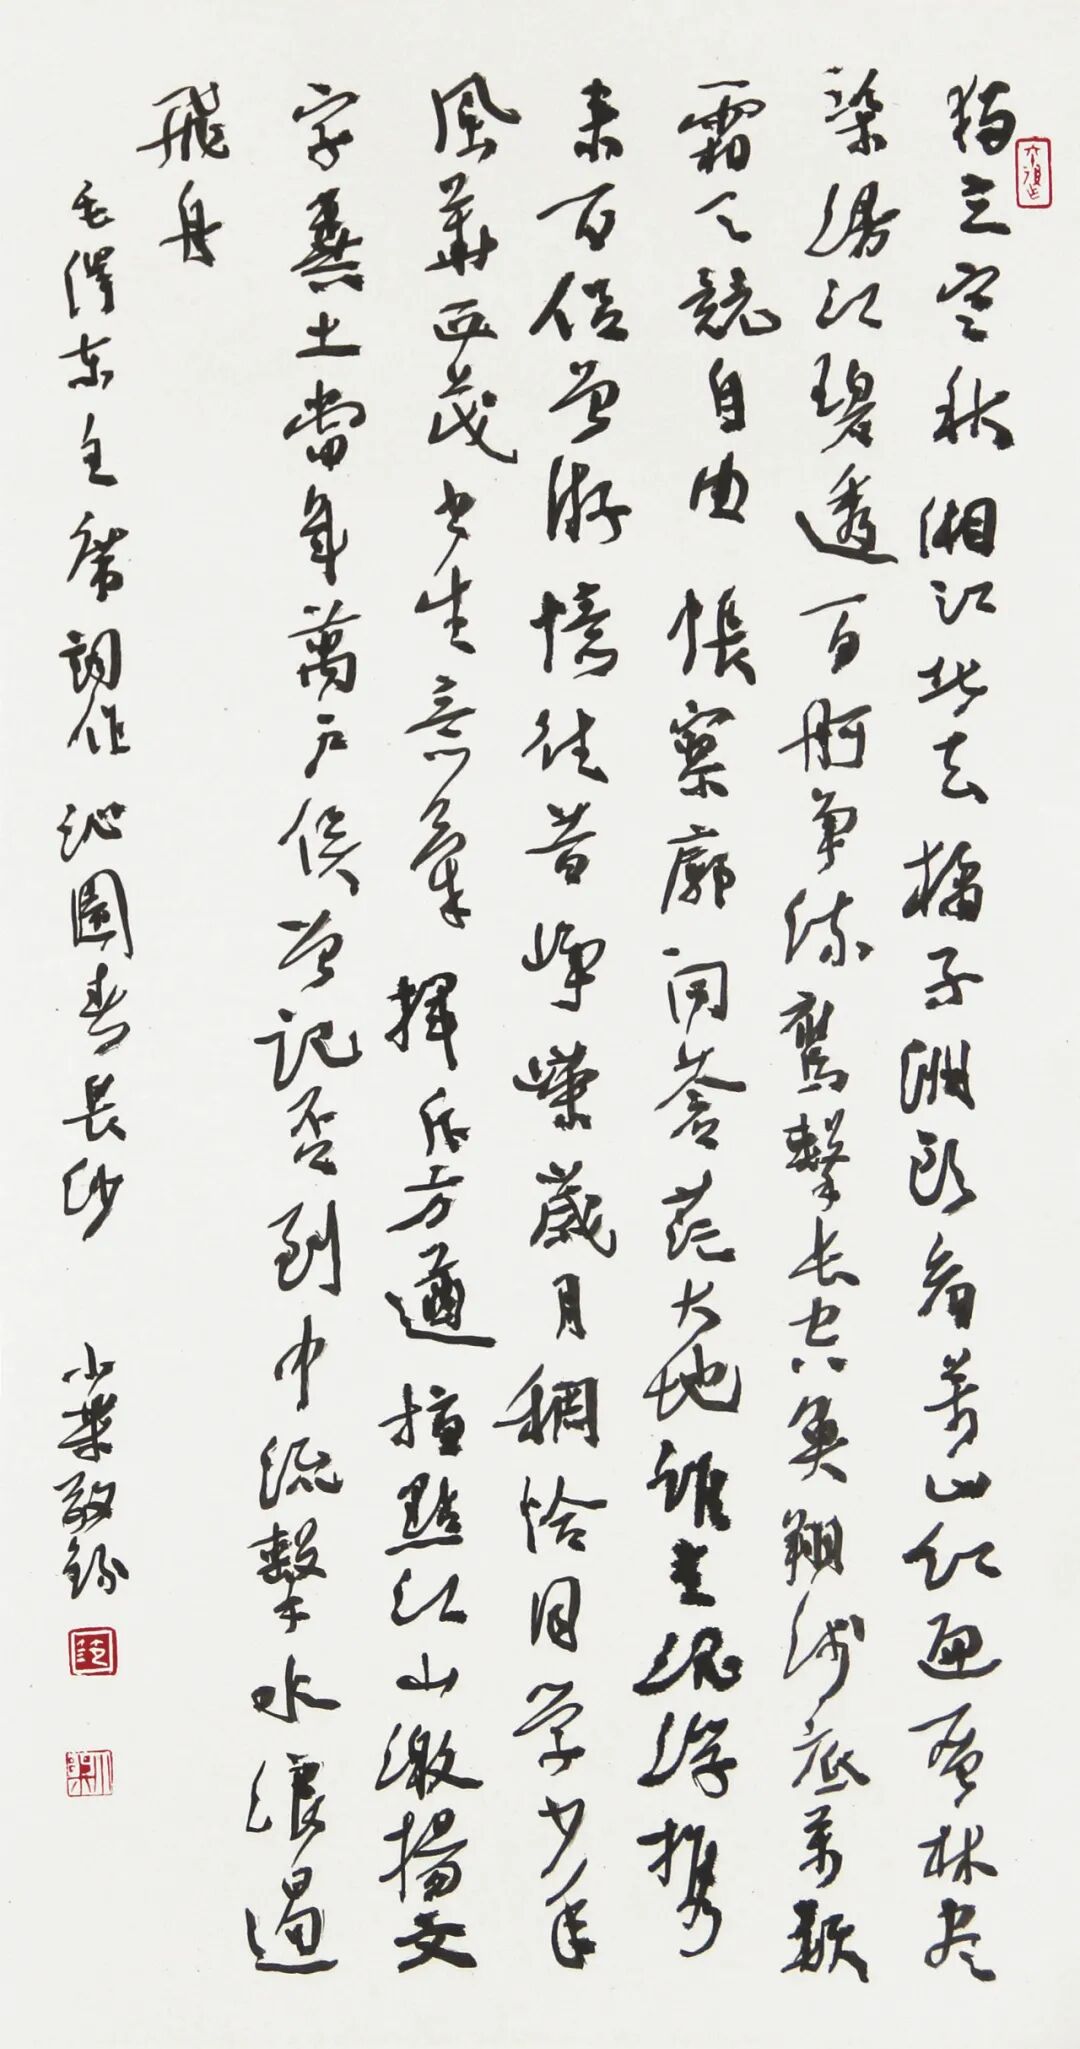 独立寒秋湘江北去橘子洲頭看萬山紅遍層林尽
染漫江碧透百舸争流鷹擊長空魚翔淺底萬類
霜天競自由悵寥廓問蒼茫大地誰主沉浮携
来百侣曾游憶往昔崢嶸歲月稠恰同学少年
風華正茂書生意氣揮斥方遒指點江山激揚文
字糞土當年萬户侯曾記否到中流擊水浪遏
飛舟
毛澤東主席詞作沁園春長沙 小敬錄
范